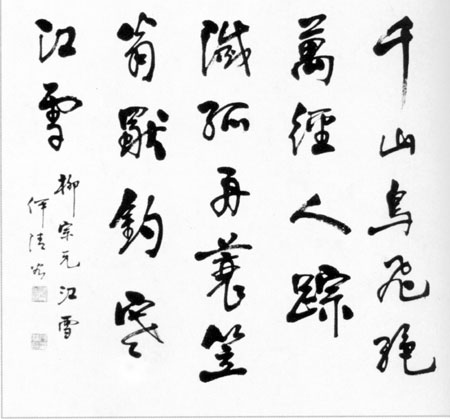 千山鳥飛絕
萬徑人踪
滅孤舟蓑笠
翁獨釣寒
江雪
柳宗元江雪